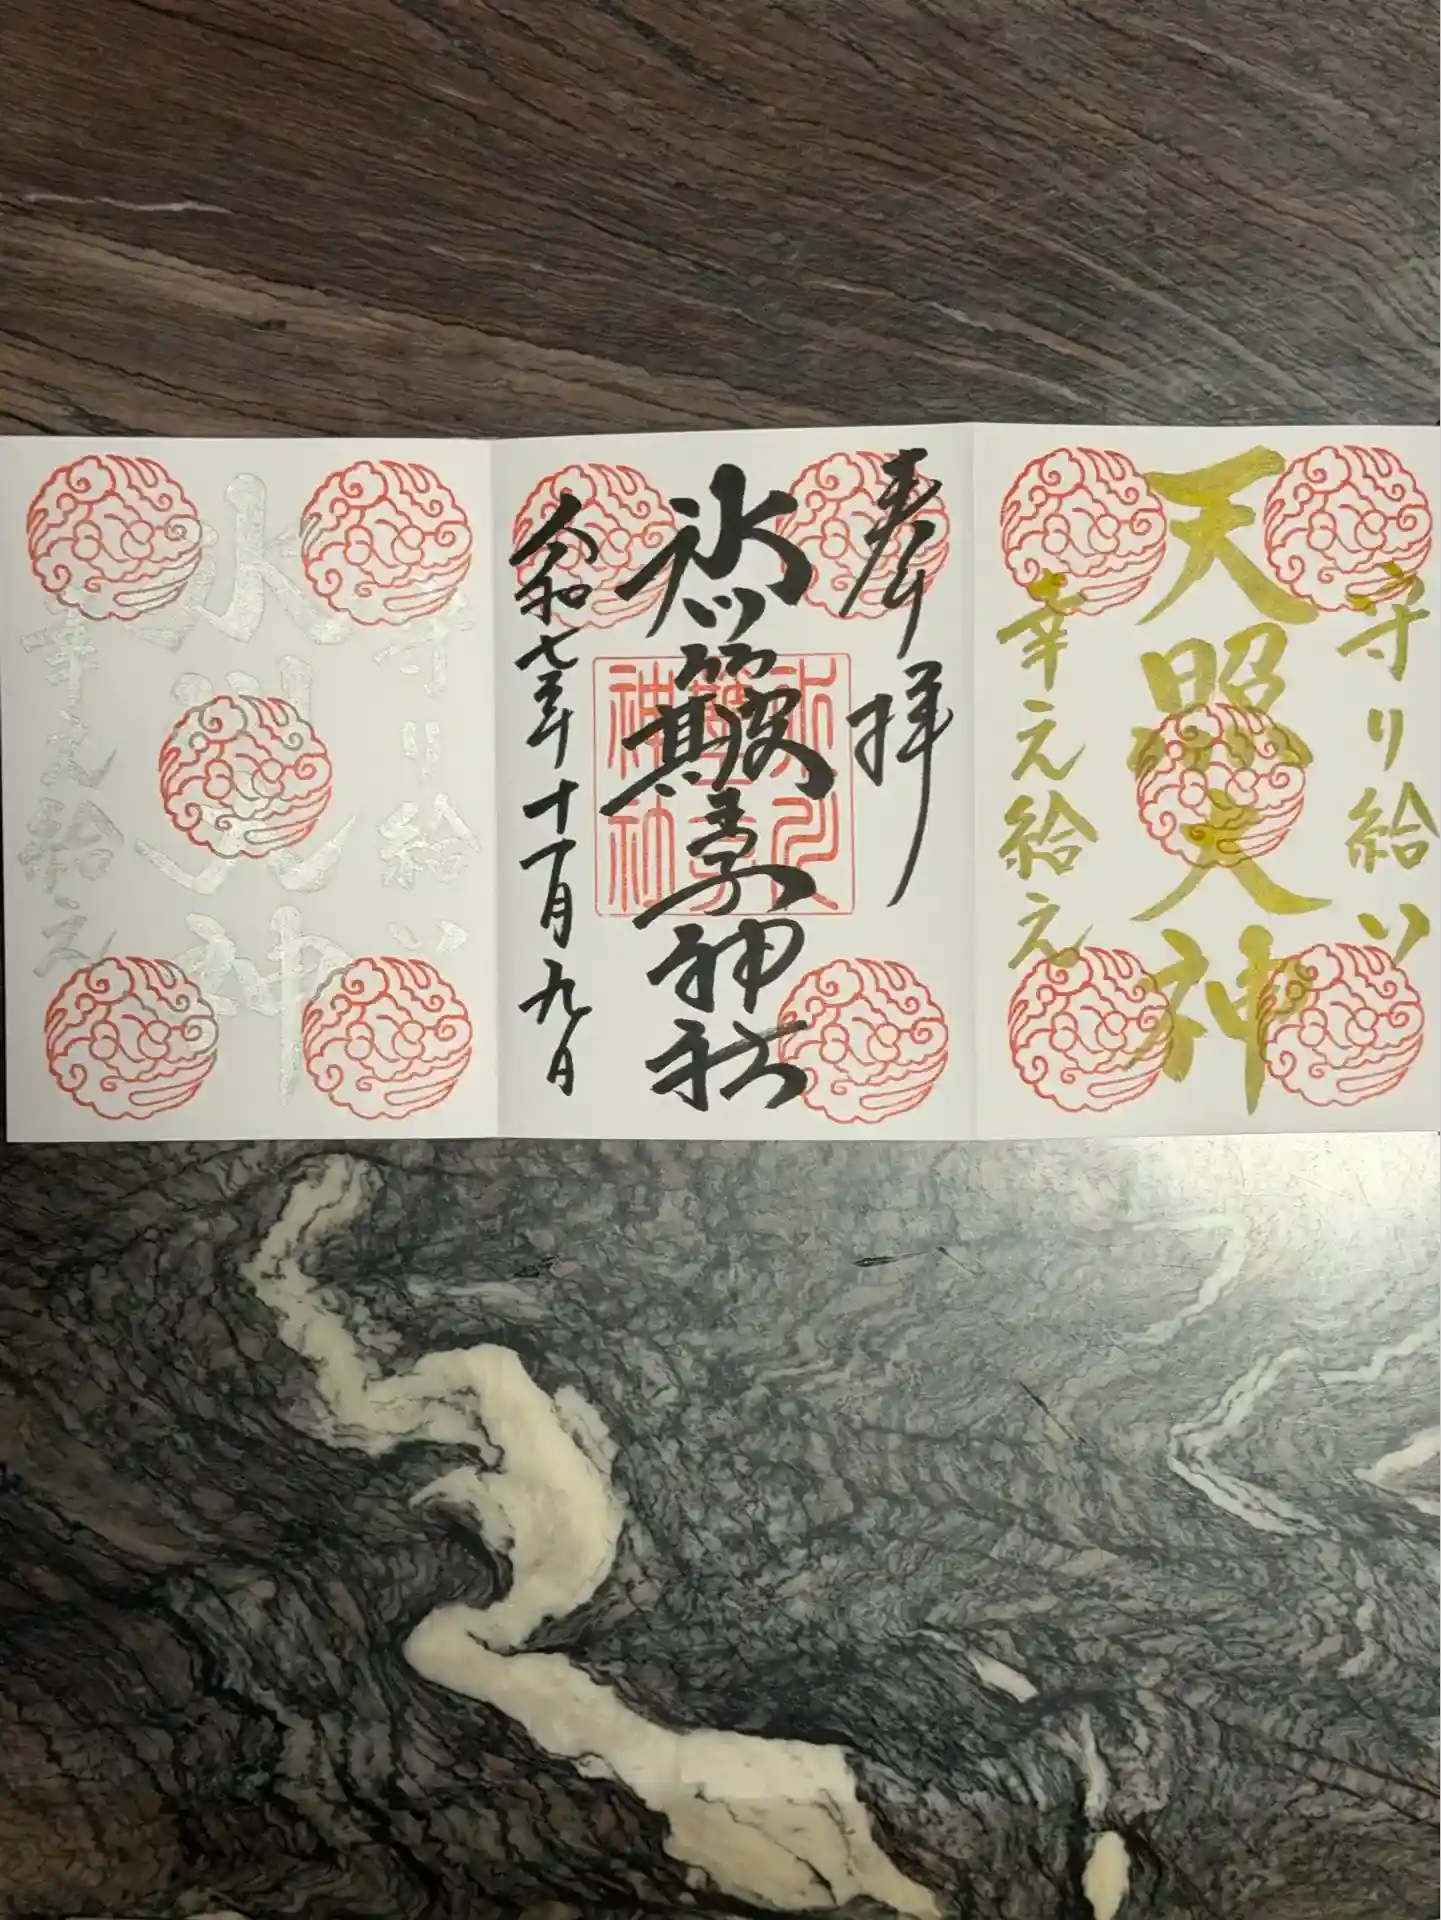 守り給い
天照大神
幸え給え
奉拝
氷川簸王子神社
氷川
簸王子
神社
令和七年十一月九日
守り給い
氷川大神
幸え給え